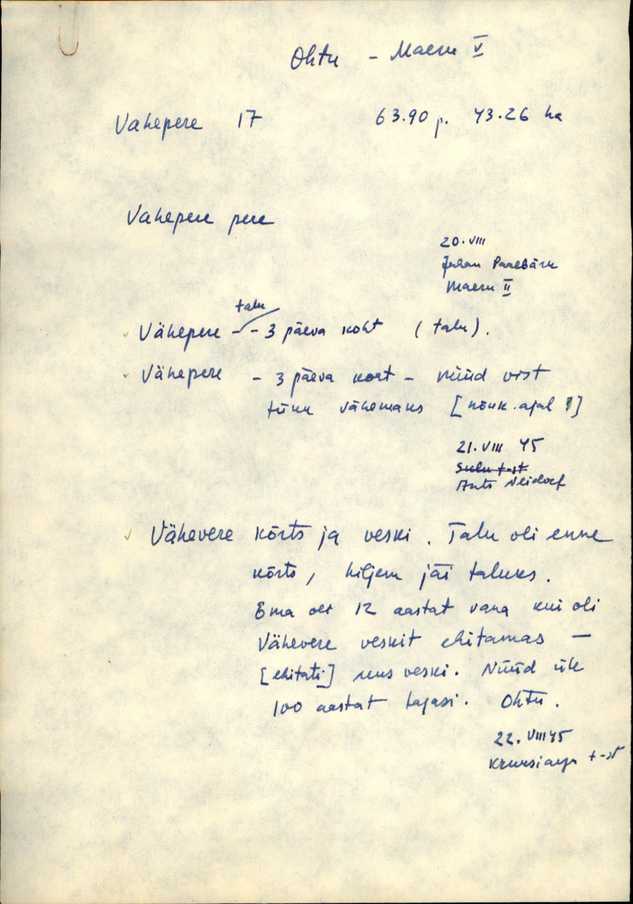 Ohtu - Maeru V
Vahepere 17 63.90 p. 43.26 ha
Vahepere pere
20. VIII
Juhan
Maeru II
talu
Vähepere - - 3 päeva koht (talu).
Vähepere - 3 päeva koht - nüüd vist
tünn vähemaks [nõuk. ajal!]
21. VIII 45
Ants Neidorf
Vähevere kõrts ja veski. Talu oli enne
kõrts, hiljem jäi taluks.
Ema olt 12 aastat vana kui oli
Vähevere veskit ehitamas -
[ehitati] uus veski. Nüüd üle
100 aastat tagasi. Ohtu.
22. VIII 45
t-st